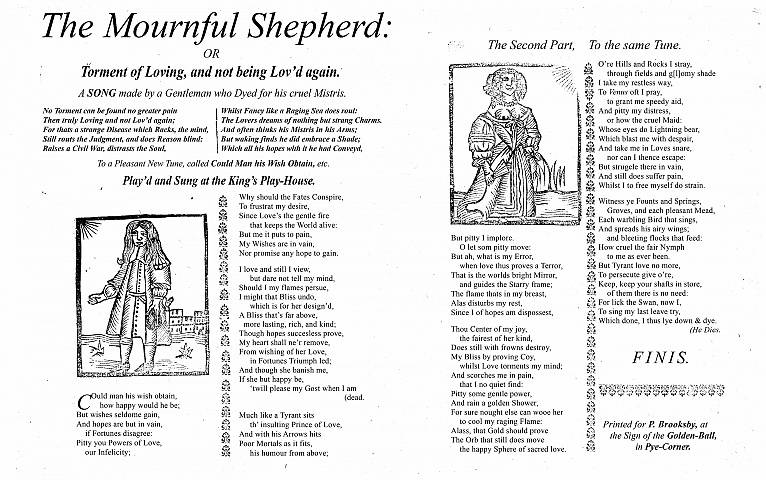 The Mournful Shepherd:
OR
Torment of Loving, and not being Lov'd again.
A SONG made by a Gentleman who Dyed for his cruel Mistris.
No Torment can be found no greater pain
Then truly Loving and not Lov'd again;
For thats a strange Disease which Racks, the mind,
Still routs the Judgment, and does Reason blind:
Raises a Civil War, distracts the Soul,
Whilst Fancy like a Raging Sea does roul:
The Lovers dreams of nothing but strang Charms.
And often thinks his Mistris in his Arms;
But waking finds he did embrace a Shade;
Which all his hopes with it he had Conveyd,
To a Pleasant New Tune, called Could Man his Wish Obtain, etc.
Play'd and Sung at the King's Play-House.
COuld man his wish obtain,
how happy would he be;
But wishes seldome gain,
And hopes are but in vain,
if Fortunes disagree:
Pitty you Powers of Love,
our Infelicity;
Why should the Fates Conspire,
To frustrat my desire,
Since Love's the gentle fire
that keeps the World alive:
But me it puts to pain,
My Wishes are in vain,
Nor promise any hope to gain.
I love and still I view,
but dare not tell my mind,
Should I my flames persue,
I might that Bliss undo,
which is for her design'd,
A Bliss that's far above,
more lasting, rich, and kind;
Though hopes succesless prove,
My heart shall ne'r remove,
From wishing of her Love,
in Fortunes Triumph led;
And though she banish me,
If she but happy be,
'twill please my Gost when I am
(dead.
Much like a Tyrant sits
th' insulting Prince of Love,
And with his Arrows hits
Poor Mortals as it fits,
his humour from above;
The Second Part, To the same Tune.
But pitty I implore.
O let som pitty move:
But ah, what is my Error,
when love thus proves a Terror,
That is the worlds bright Mirror,
and guides the Starry frame;
The flame thats in my breast,
Alas disturbs my rest,
Since I of hopes am dispossest,
Thou Center of my joy,
the fairest of her kind,
Does still with frowns destroy,
My Bliss by proving Coy,
whilst Love torments my mind;
And scorches me in pain,
that I no quiet find:
Pitty some gentle power,
And rain a golden Shower,
For sure nought else can wooe her
to cool my raging Flame:
Alass, that Gold should prove
The Orb that still does move
the happy Sphere of sacred love.
O're Hills and Rocks I stray,
through fields and g[l]omy shade
I take my restless way,
To Venus oft I pray,
to grant me speedy aid,
And pitty my distress,
or how the cruel Maid:
Whose eyes do Lightning bear,
Which blast me with despair,
And take me in Loves snare,
nor can I thence escape:
But strugele there in vain,
And still does suffer pain,
Whilst I to free myself do strain.
Witness ye Founts and Springs,
Groves, and each pleasant Mead,
Each warbling Bird that sings,
And spreads his airy wings;
and bleeting flocks that feed:
How cruel the fair Nymph
to me as ever been.
But Tyrant love no more,
To persecute give o're,
Keep, keep your shafts in store,
of them there is no need:
For lick the Swan, now I,
To sing my last leave try,
Which done, I thus lye down & dye.
(He Dies.
FINIS.
Printed for P. Brooksby, at
the Sign of the Golden-Ball,
in Pye-Corner.